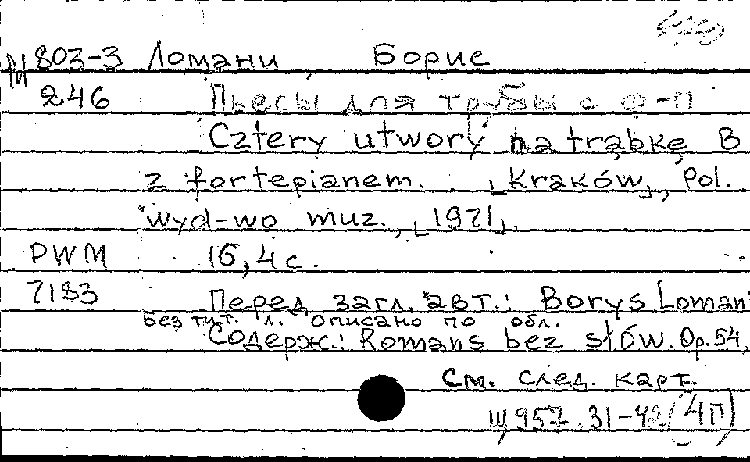 803-3 Ломани Борис
246 Пьесы для трубы с ф-п
Cztery utwory na trąbkę B
z fortepianem. [Kraków], Pol.
wyd-wo muz., [1971].
PWM 16, 4 с.
7183 Перед загл. авт.: Borys Loman
Без тит. л. Описано по обл.
Содерж.: Romans bez słów. Op. 54,
См. след. карт.
957.31-42 (4П)